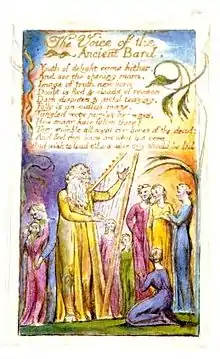 The Voice of the
Ancient Bard
Youth of delight come hither,
And see the opening morn,
Image of truth new born
Doubt is fled & clouds of reason
Dark disputes & artful teazing,
Folly is an endless maze,
Tangled roots perplex her ways,
How many have fallen there!
They stumble all night over bones of the dead;
And feel they know not what but care;
And wish to lead others when they should be led